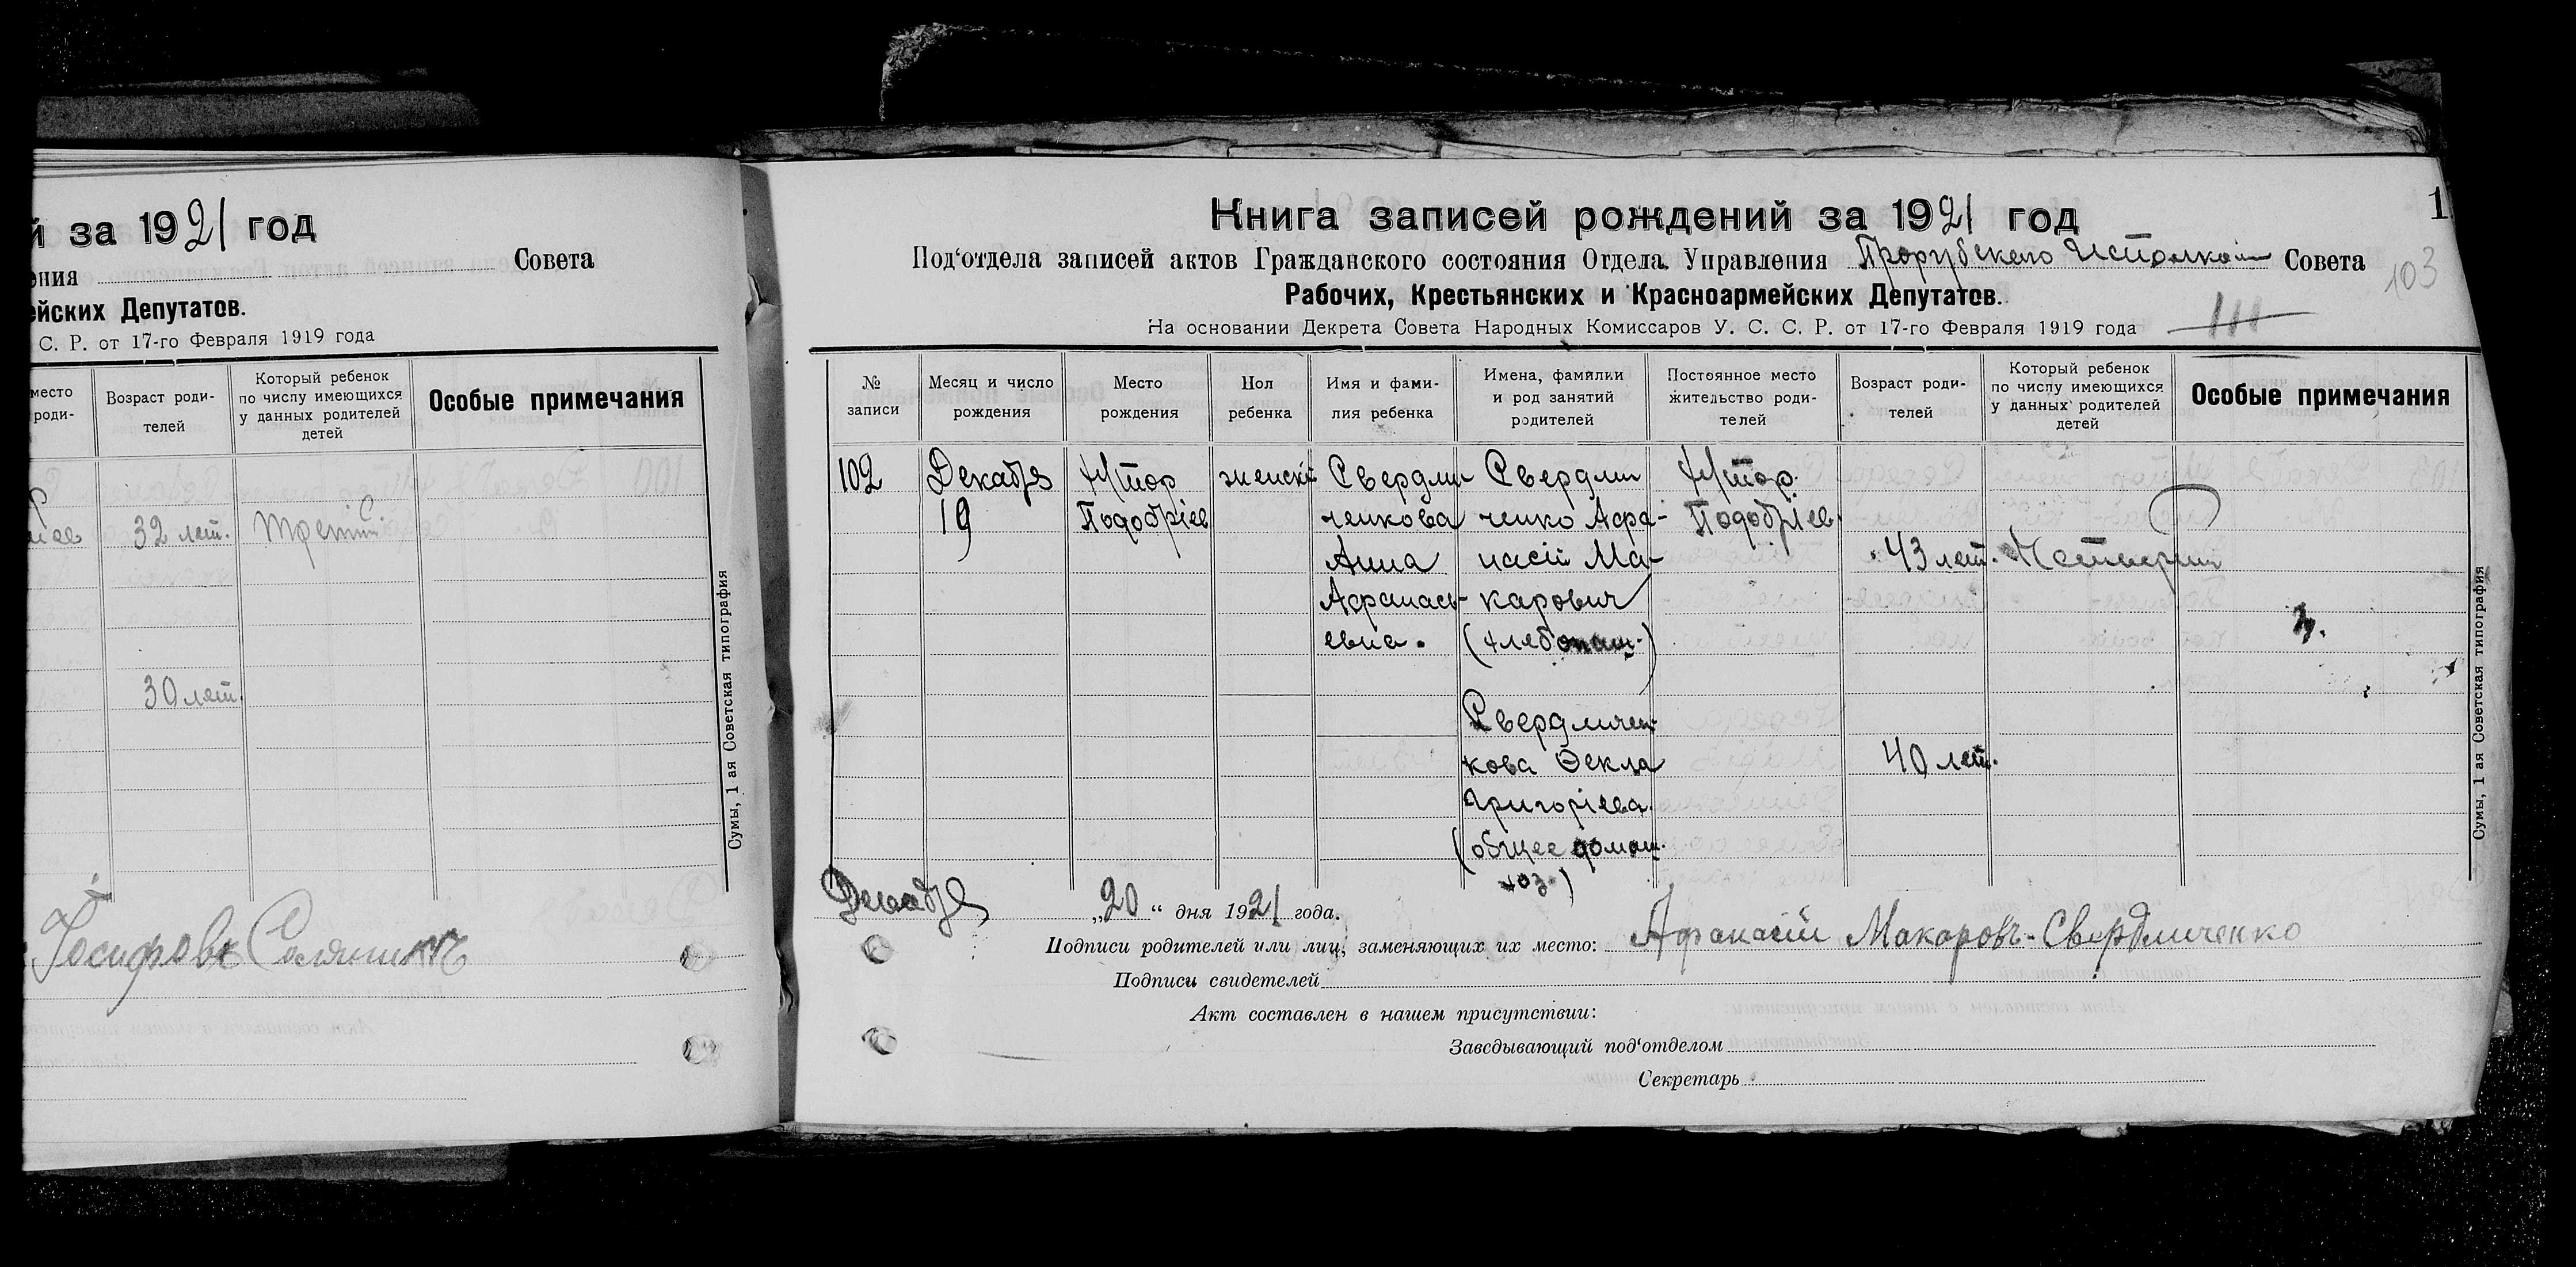 й за 1921 год
ения Совета
ейских Депутатов.
С. Р. от 17-го Февраля 1919 года
место
роди-
Возраст роди-
телей
Который ребенок
по числу имеющихся
у данных родителей
детей
Особые примечания
32 лет.
третий
30 лет.
Иосифовъ
Сумы, 1 ая Советская типография
1
Книга записей рождений за 1921 год
Под‘отдела записей актов Гражданского состояния Отдела Управления Прорубского Исполкома Совета
103
Рабочих, Крестьянских и Красноармейских Депутатов.
На основании Декрета Совета Народных Комиссаров У. С. С. Р. от 17-го Февраля 1919 года
111
№
записи
Месяц и число
рождения
Место
рождения
Пол
ребенка
Имя и фами-
лия ребенка
Имена, фамилии
и род занятий
родителей
Постоянное место
жительство роди-
телей
Возраст роди-
телей
Который ребенок
по числу имеющихся
у данных родителей
детей
Особые примечания
102
Декабря
19
Хутор
Подобріев
женскі
Свердли
ченкова
Анна
Афанась-
евна.
Свердли
ченко Афа-
насій Ма-
карович
(хлебопаш.)
Свердличен-
кова Фекла
Григоріева
(общее домаш.
хоз.)
Хутор
Подобріев.
43 лет.
40 лет.
Четверт
Сумы, 1 ая Советская типография
Декабря „20“ дня 1921 года.
Подписи родителей или лиц, заменяющих их место: Афанасій Макаровъ-Свердличенко
Подписи свидетелей
Акт составлен в нашем присутствии:
Заведывающий под‘отделом
Секретарь